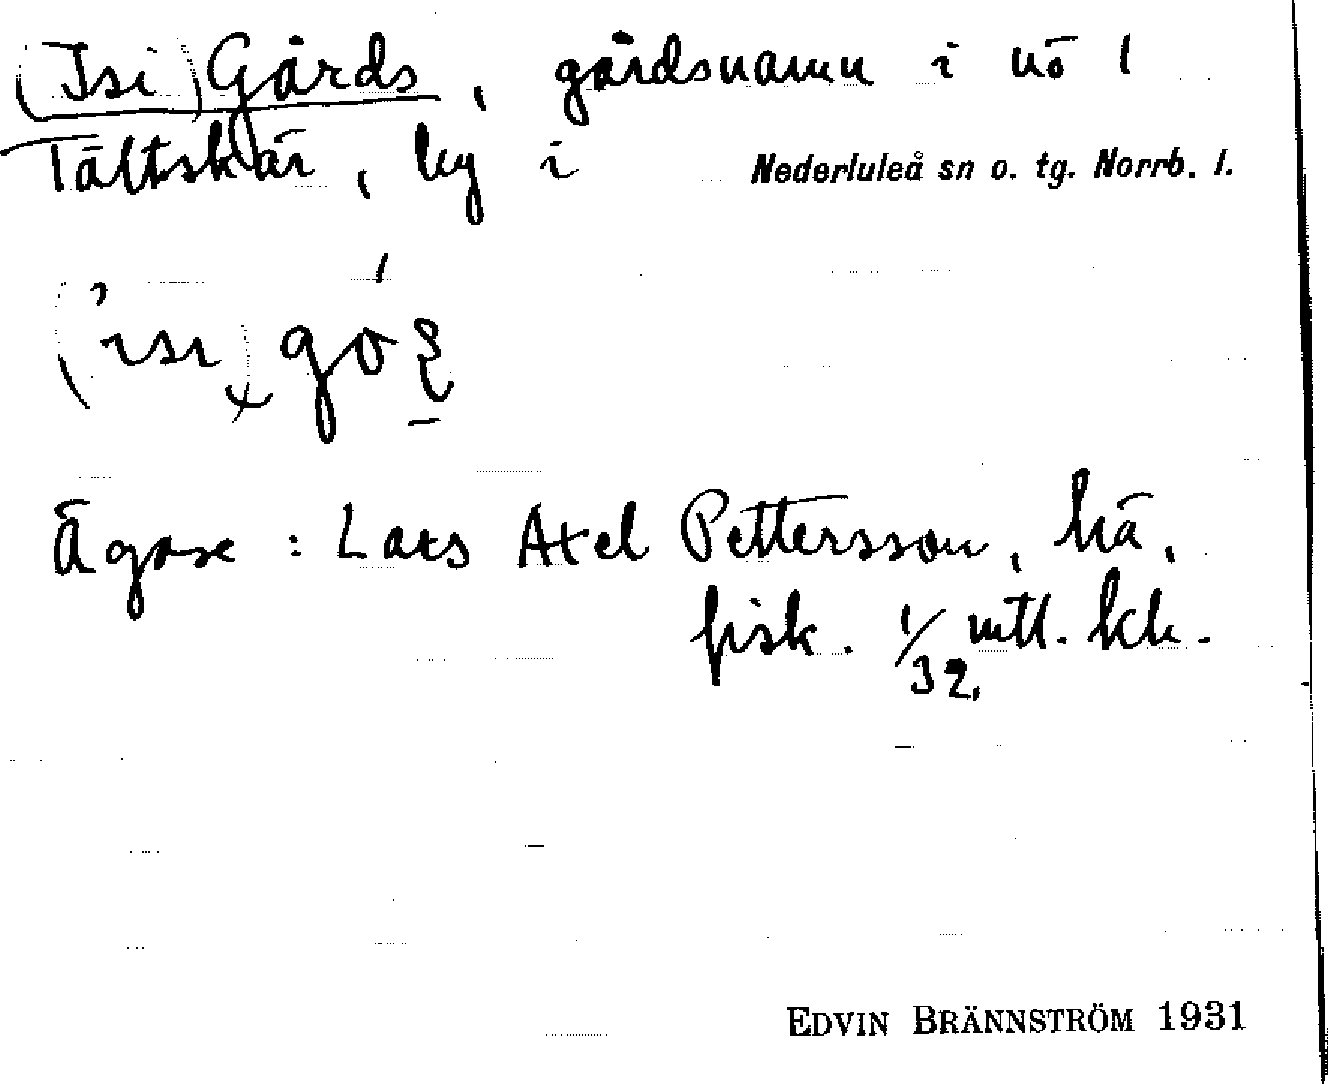 (Isi) Gårds, gårdsnamn i nö 1
Tältskär, by i Nederluleå sn o. tg. Norrb. l.
Ägare: Lars Axel Pettersson,
fisk. 1/32 mtl.
EDVIN BRÄNNSTRÖM 1931